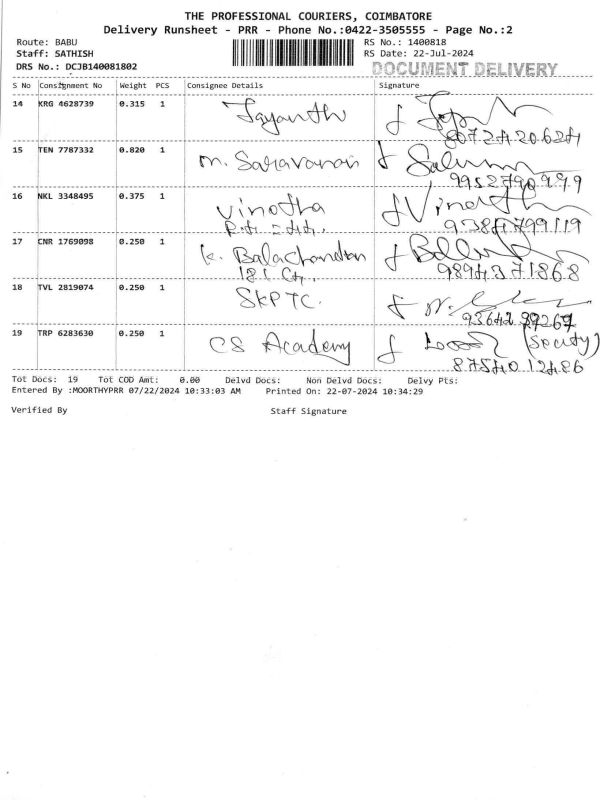 THE PROFESSIONAL COURIERS, COIMBATORE
Delivery Runsheet - PRR - Phone No.:0422-3505555 - Page No.:2
Route: BABU RS No.: 1400818
Staff: SATHISH RS Date: 22-Jul-2024
DRS No.: DCJB140081802 DOCUMENT DELIVERY
S No Consignment No Weight PCS Consignee Details Signature
14 KRG 4628739 0.315 1 Jayanth
8072420624
15 TEN 7787332 0.820 1 M. Saravanan
9952790999
16 NKL 3348495 0.375 1 Vinotha Vinotha
9384799119
17 CNR 1769098 0.250 1 K. Balachandran
181 9894371868
18 TVL 2819074 0.250 1 SKPTC.
9364239267
19 TRP 6283630 0.250 1 CS Academy
8754012486
Tot Docs: 19 Tot COD Amt: 0.00 Delvd Docs: Non Delvd Docs: Delvy Pts:
Entered By :MOORTHYPRR 07/22/2024 10:33:03 AM Printed On: 22-07-2024 10:34:29
Verified By Staff Signature